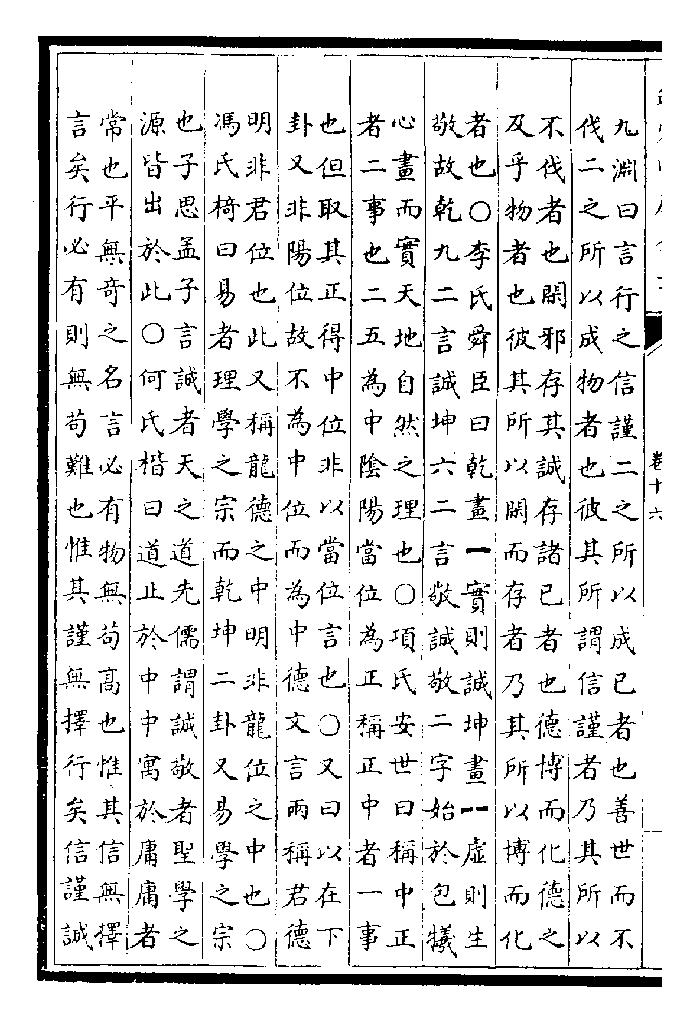 卷十六
九淵曰言行之信謹二之所以成已者也善世而不
伐二之所以成物者也彼其所謂信謹者乃其所以
不伐者也閑邪存其誠存諸已者也德博而化德之
及乎物者也彼其所以閑而存者乃其所以博而化
者也○李氏舜臣曰乾畫⚊實則誠坤畫⚋虛則生
敬故乾九二言誠坤六二言敬誠敬二字始於包犧
心畫而實天地自然之理也○項氏安世曰稱中正
者二事也二五為中陰陽當位為正稱正中者一事
也但取其正得中位非以當位言也○又曰以在下
卦又非陽位故不為中位而為中德文言兩稱君德
明非君位也此又稱龍德之中明非龍位之中也○
馮氏椅曰易者理學之宗而乾坤二卦又易學之宗
也子思孟子言誠者天之道先儒謂誠敬者聖學之
源皆出於此○何氏楷曰道止於中中寓於庸庸者
常也平無奇之名言必有物無苟高也惟其信無擇
言矣行必有則無苟難也惟其謹無擇行矣信謹誠